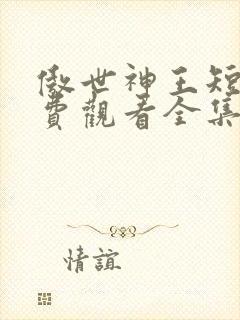 傲世神王短
費觀看全集
情誼